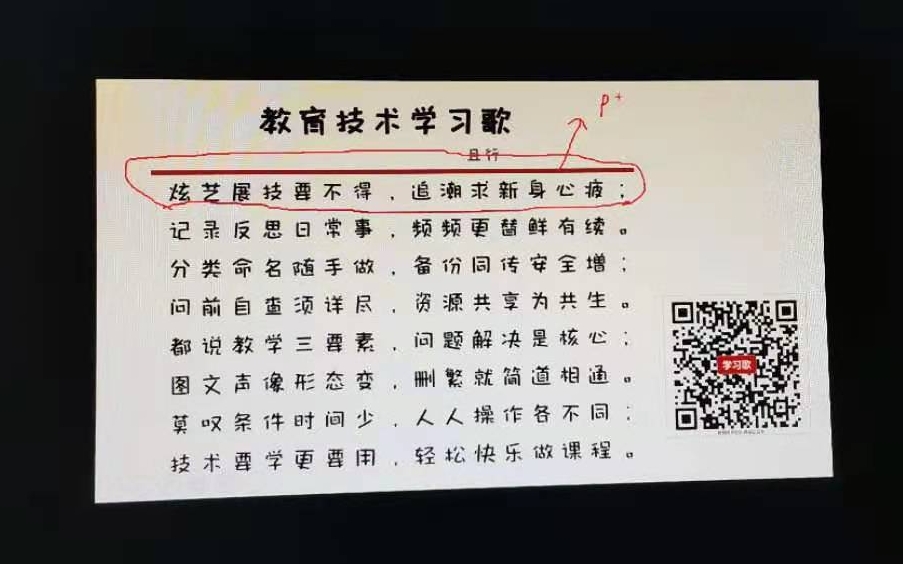 教育技术学习歌
且行
P+
炫艺展技要不得，追潮求新身心疲；
记录反思日常事，频频更替鲜有续。
分类命名随手做，备份同传安全增；
问前自查须详尽，资源共享为共生。
都说教学三要素，问题解决是核心；
图文声像形态变，删繁就简道相通。
莫叹条件时间少，人人操作各不同；
技术要学更要用，轻松快乐做课程。
学习歌